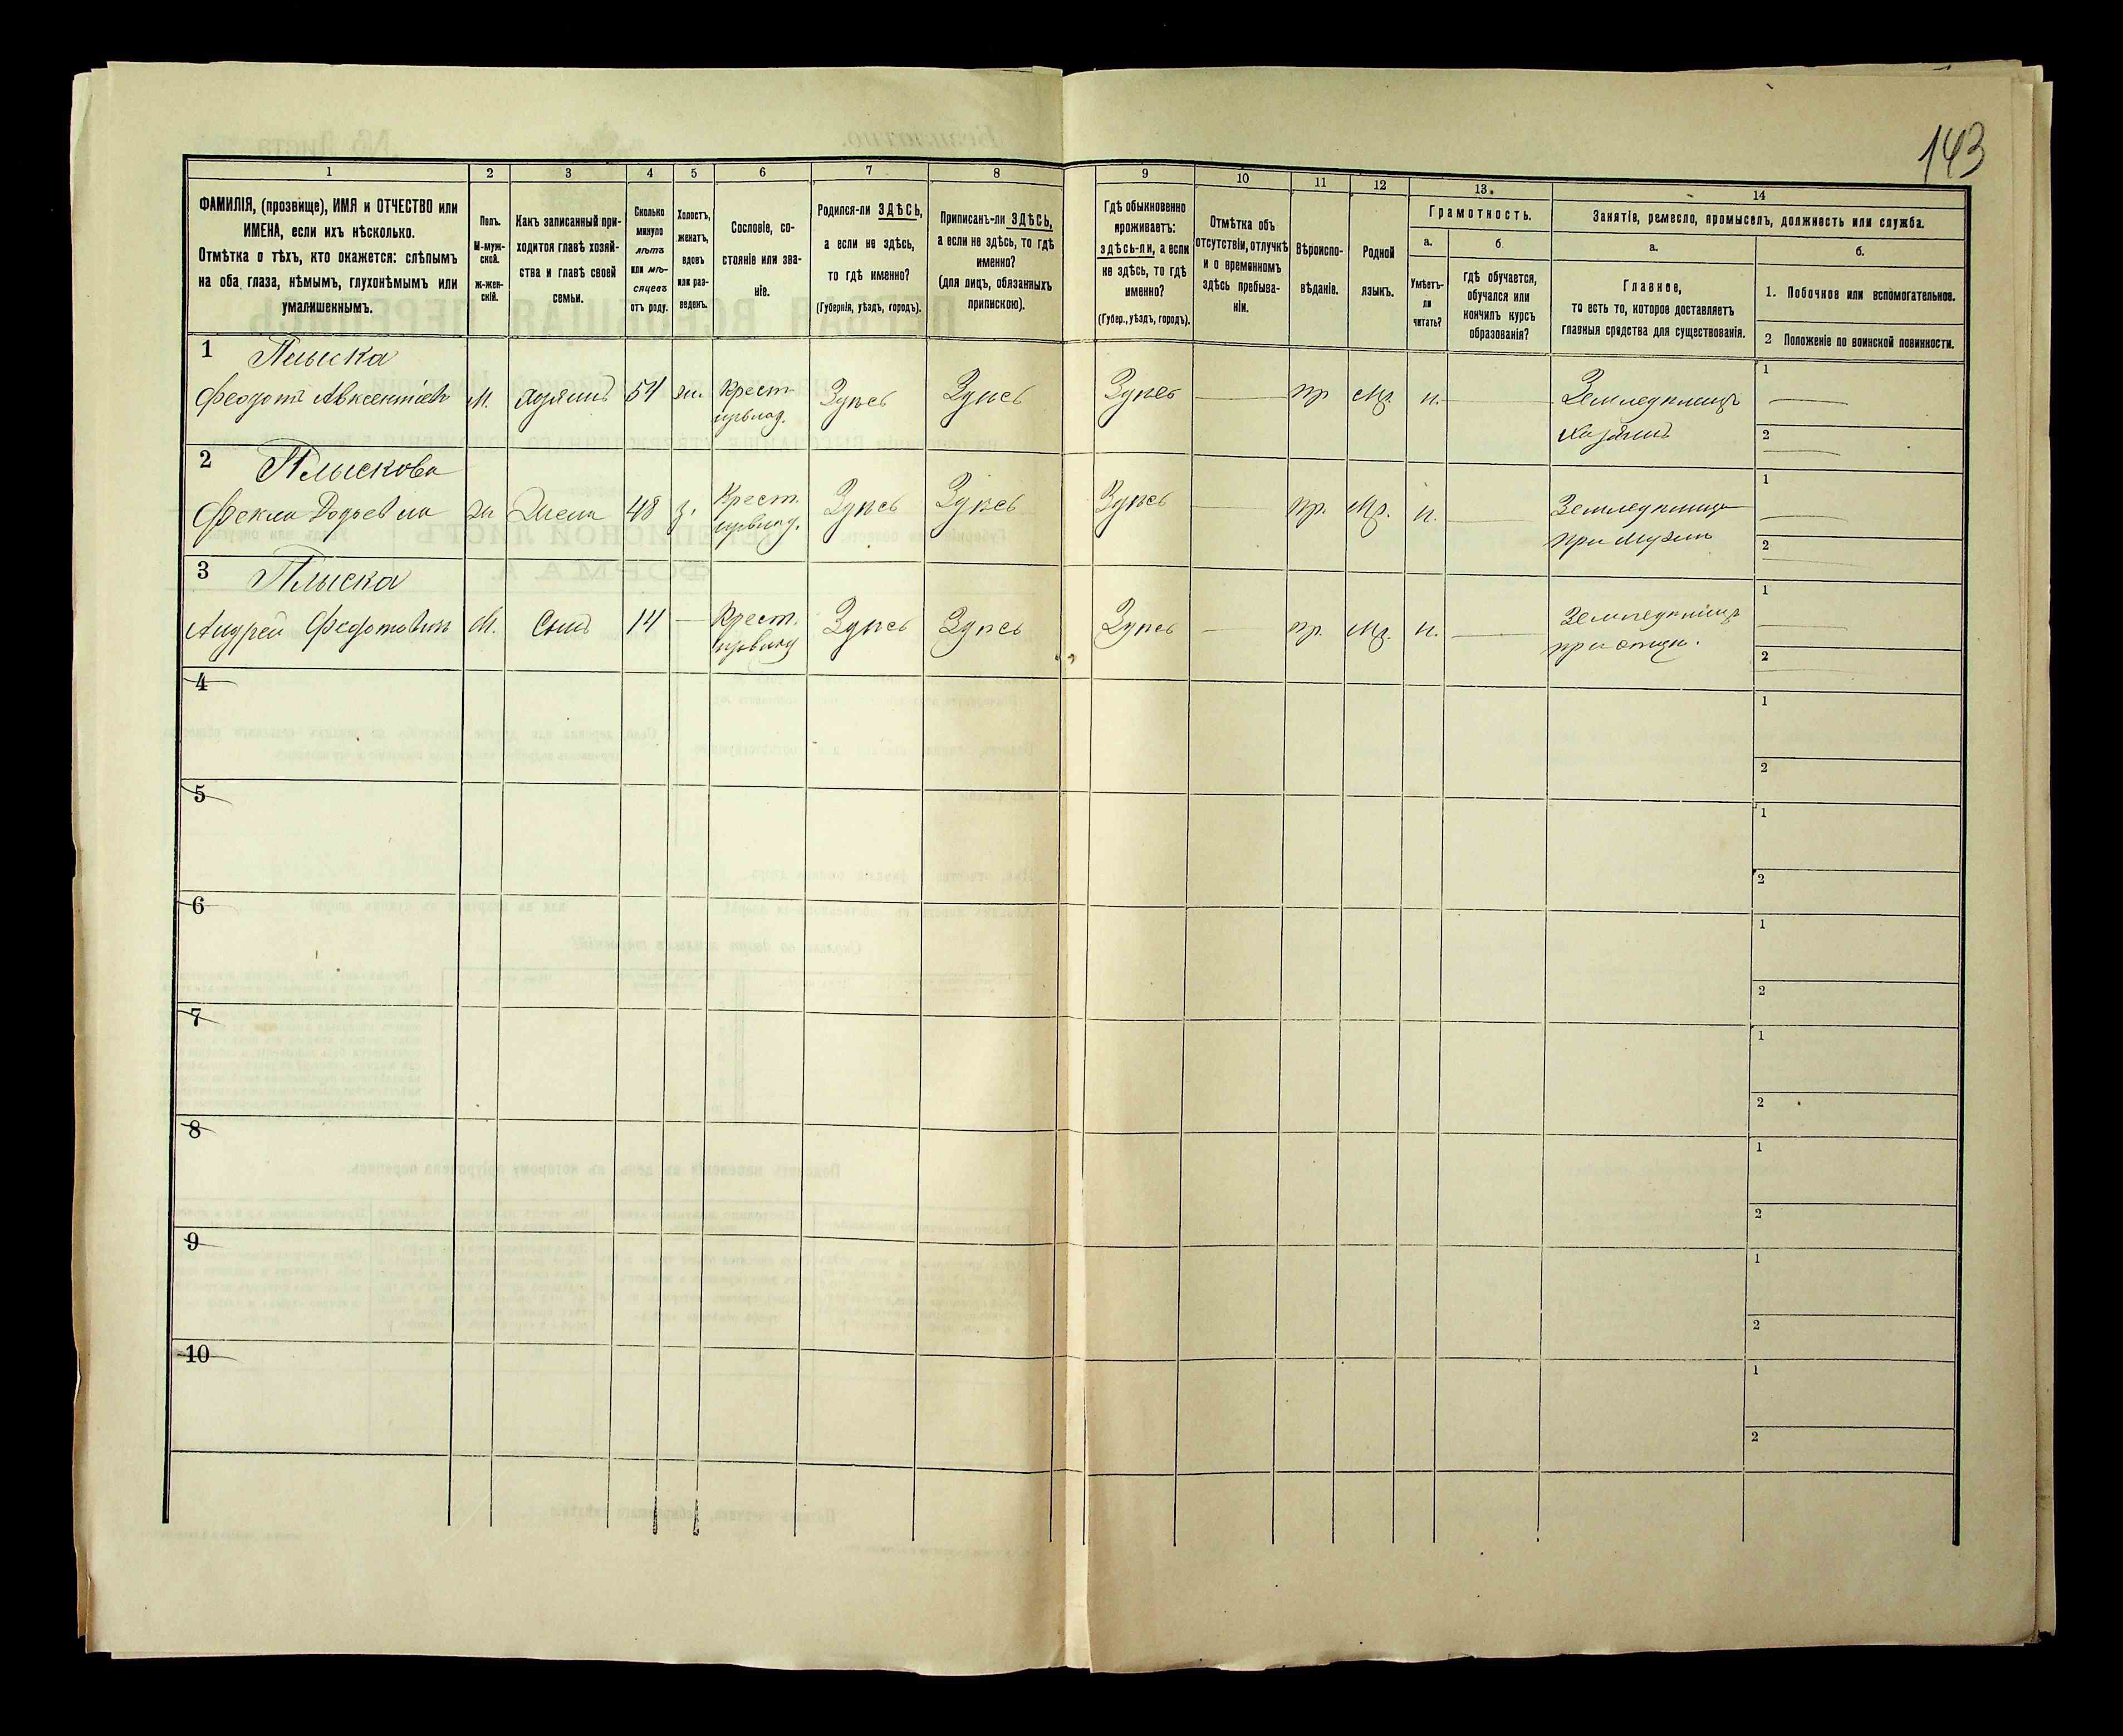 143
1
2
3
4
5
6
7
8
9
10
11
12
13.
14
ФАМИЛІЯ, (прозвище), ИМЯ и ОТЧЕСТВО или
ИМЕНА, если ихъ нѣсколько.
Отмѣтка о тѣхъ, кто окажется: слѣпымъ
на оба глаза, нѣмымъ, глухонѣмымъ или
умалишеннымъ.
Полъ.
М-муж-
ской.
ж-жен-
скій.
Какъ записанный при-
ходится главѣ хозяй-
ства и главѣ своей
семьи.
Сколько
минуло
лѣтъ
или мѣ-
сяцевъ
отъ роду.
Холостъ,
женатъ,
вдовъ
или раз-
веденъ.
Сословіе, со-
стояніе или зва-
ніе.
Родился-ли ЗДѢСЬ,
а если не здѣсь,
то гдѣ именно?
(Губернія, уѣздъ, городъ).
Приписанъ-ли ЗДѢСЬ,
а если не здѣсь, то гдѣ
именно?
(для лицъ, обязанныхъ
припискою).
Гдѣ обыкновенно
проживаетъ:
здѣсь-ли, а если
не здѣсь, то гдѣ
именно?
(Губер., уѣздъ, городъ).
Отмѣтка объ
отсутствіи, отлучкѣ
и о временномъ
здѣсь пребыва-
ніи.
Вѣроиспо-
вѣданіе.
Родной
языкъ.
Грамотность.
а.
Умѣетъ-
ли
читать?
б
гдѣ обучается,
обучался или
кончилъ курсъ
образованія?
Занятіе, ремесло, промыселъ, должность или служба.
а.
Главное,
то есть то, которое доставляетъ
главныя средства для существованія.
б.
1. Побочное или вспомогательное.
2 Положеніе по воинской повинности.
1 Плыска
Феодотъ Авксентіевъ М. Хозяинъ 54 жн. Крест. Здѣсь Здѣсь Здѣсь пр мр. н. Земледѣлецъ
хозяинъ
1
2
2 Плыскова
Фекла жн Жена 48 з. Крест. Здѣсь Здѣсь Здѣсь пр. мр. н.
при мужѣ
1
2
3 Плыска
Андрей Федотовичъ М. Сынъ 14 Крест. Здѣсь Здѣсь Здѣсь пр. мр. н. Земледѣлецъ
при отцѣ.
1
2
4
1
2
5
1
2
6
1
2
7
1
2
8
1
2
9
1
2
10
1
2